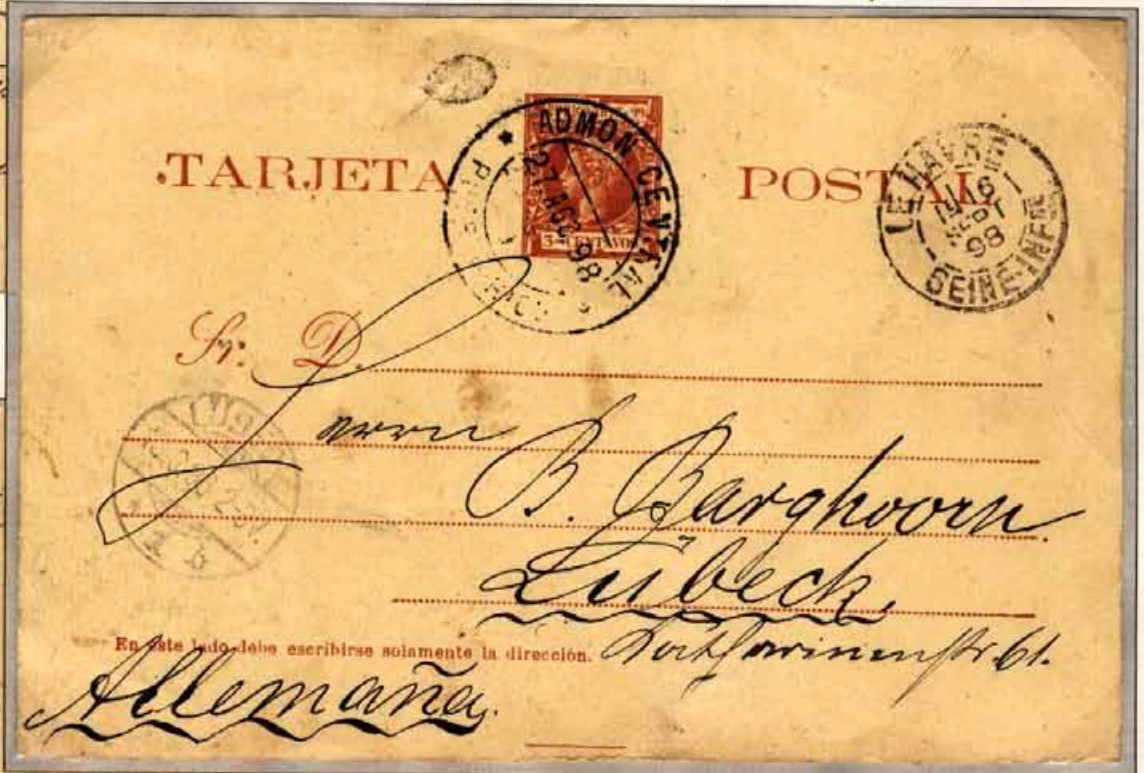 TARJETA POSTAL
ADMON CENTRAL
27 AGO 98
3 CENTAVOS
LE HAVRE
16
SEPT
98
SEINE-INFRE
Sr. D.
Herrn
B. Barghoorn.
Lübeck.
En este lado debe escribirse solamente la dirección.
61.
Allemaña.